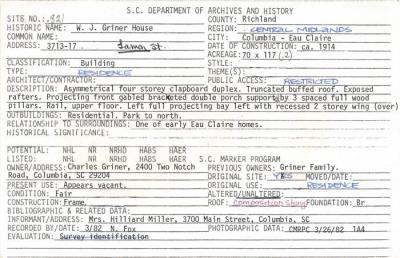 S.C. DEPARTMENT OF ARCHIVES AND HISTORY
SITE NO.: 921 COUNTY: Richland
HISTORIC NAME: W. J. Griner House REGION: CENTRAL MIDLANDS
COMMON NAME: CITY: Columbia - Eau Claire
ADDRESS: 3713-17 Lamar St. DATE OF CONSTRUCTION: ca. 1914
ACREAGE: 70 x 117 (.2)
CLASSIFICATION: Building STYLE:
TYPE: RESIDENCE THEME(S):
ARCHITECT/CONTRACTOR: PUBLIC ACCESS: RESTRICTED
DESCRIPTION: Asymmetrical four storey clapboard duplex. Truncated buffed roof. Exposed
rafters. Projecting front gabled bracketed double porch supported by 3 spaced full wood
pillars. Rail, upper floor. Left full projecting bay left with recessed 2 storey wing (over)
OUTBUILDINGS: Residential. Park to north.
RELATIONSHIP TO SURROUNDINGS: One of early Eau Claire homes.
HISTORICAL SIGNIFICANCE:
POTENTIAL: NHL NR NRHD HABS HAER
LISTED: NHL NR NRHD HABS HAER S.C. MARKER PROGRAM
OWNER/ADDRESS: Charles Griner, 2400 Two Notch PREVIOUS OWNERS: Griner Family.
Road, Columbia, SC 29204 ORIGINAL SITE: YES MOVED/DATE:
PRESENT USE: Appears vacant. ORIGINAL USE: RESIDENCE
CONDITION: Fair ALTERED/UNALTERED:
CONSTRUCTION: Frame ROOF: Composition Shing FOUNDATION: Br
BIBLIOGRAPHIC & RELATED DATA:
INFORMANT/ADDRESS: Mrs. Hilliard Miller, 3700 Main Street, Columbia, SC
RECORDED BY/DATE: 3/82 N. Fox PHOTOGRAPHIC DATA: CMRPC 3/26/82 1A4
EVALUATION: Survey identification